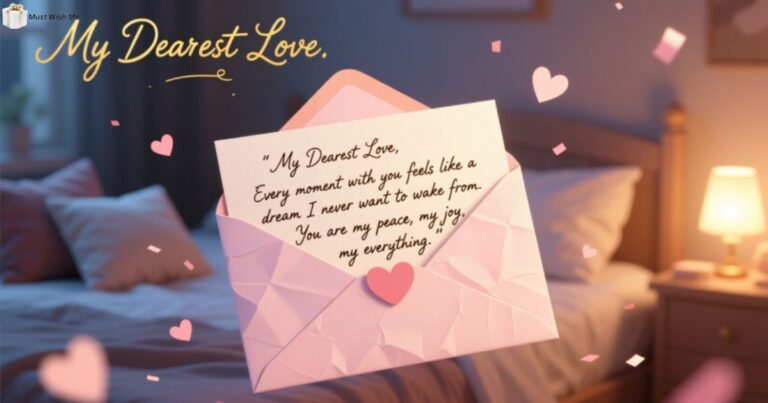 Must Wish Me
My Dearest Love.
“My Dearest Love,
Every moment with you feels like a
dream I never want to wake from.
You are my peace, my joy,
my everything.”